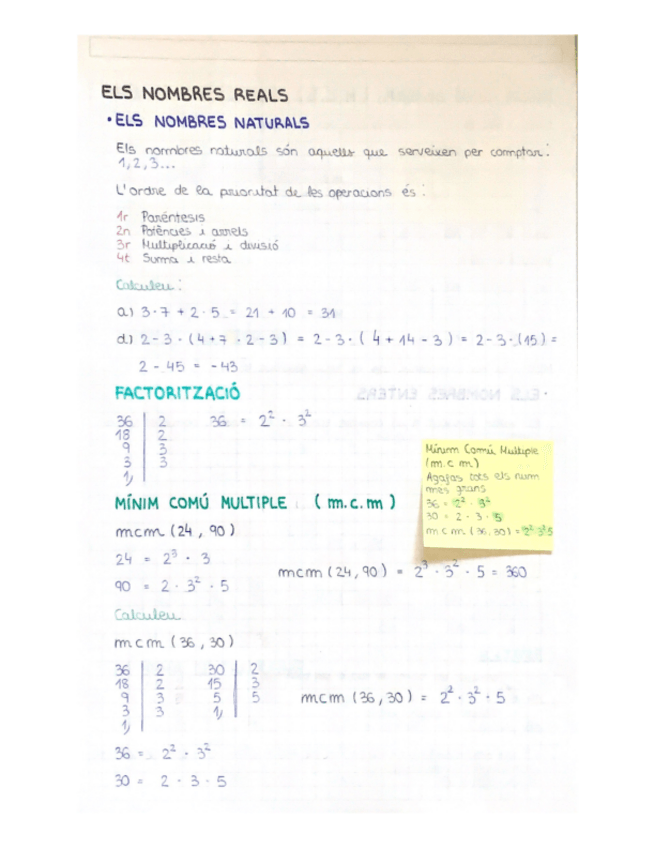 ELS NOMBRES REALS
• ELS NOMBRES NATURALS
Els normbres naturals són aquells que serveixen per comptar:
1, 2, 3...
L'ordre de la prioritat de les operacions és:
1r Parèntesis
2n Potències i arrels
3r Multiplicació i divisió
4t Suma i resta
Calculeu:
a) 3·7 + 2·5 = 21 + 10 = 31
d) 2-3·(4+7·2-3) = 2-3·(4+14-3) = 2-3·(15) =
2-45 = -43
FACTORITZACIÓ
36 | 2   36 = 2² · 3²
18 | 2
9 | 3
3 | 3
1
Mínim Comú Multiple
(m.c.m)
Agafas tots els num
mes grans
36 = 2² · 3²
30 = 2 · 3 · 5
m c m (36, 30) = 2²·3²·5
MÍNIM COMÚ MULTIPLE (m.c.m)
mcm (24, 90)
24 = 2³ · 3
90 = 2 · 3² · 5
mcm (24, 90) = 2³ · 3² · 5 = 360
Calculeu
mcm (36, 30)
36 | 2   30 | 2
18 | 2   15 | 3
9 | 3   5 | 5
3 | 3   1
1
mcm (36, 30) = 2² · 3² · 5
36 = 2² · 3²
30 = 2 · 3 · 5